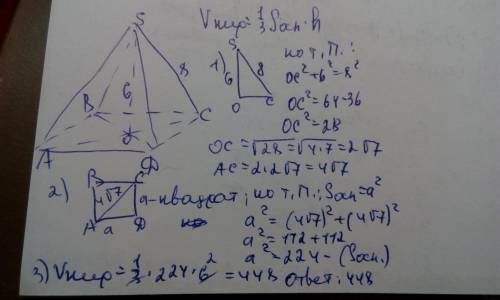 Vпир=1/3 Sосн·h
S
6
8
B
C
A
D
1)
S
6
8
O
C
по т. П.:
OC²+6²=8²
OC²=64-36
OC²=28
OC=√28=√4·7=2√7
AC=2·2√7=4√7
2)
B
C
4√7
a
A
a
D
- квадрат; по т. П.; Sосн=a²
a²=(4√7)²+(4√7)²
a²=112+112
a²=224-(Sосн.)
3) Vпир=1/3·224·6²=448 Ответ: 448